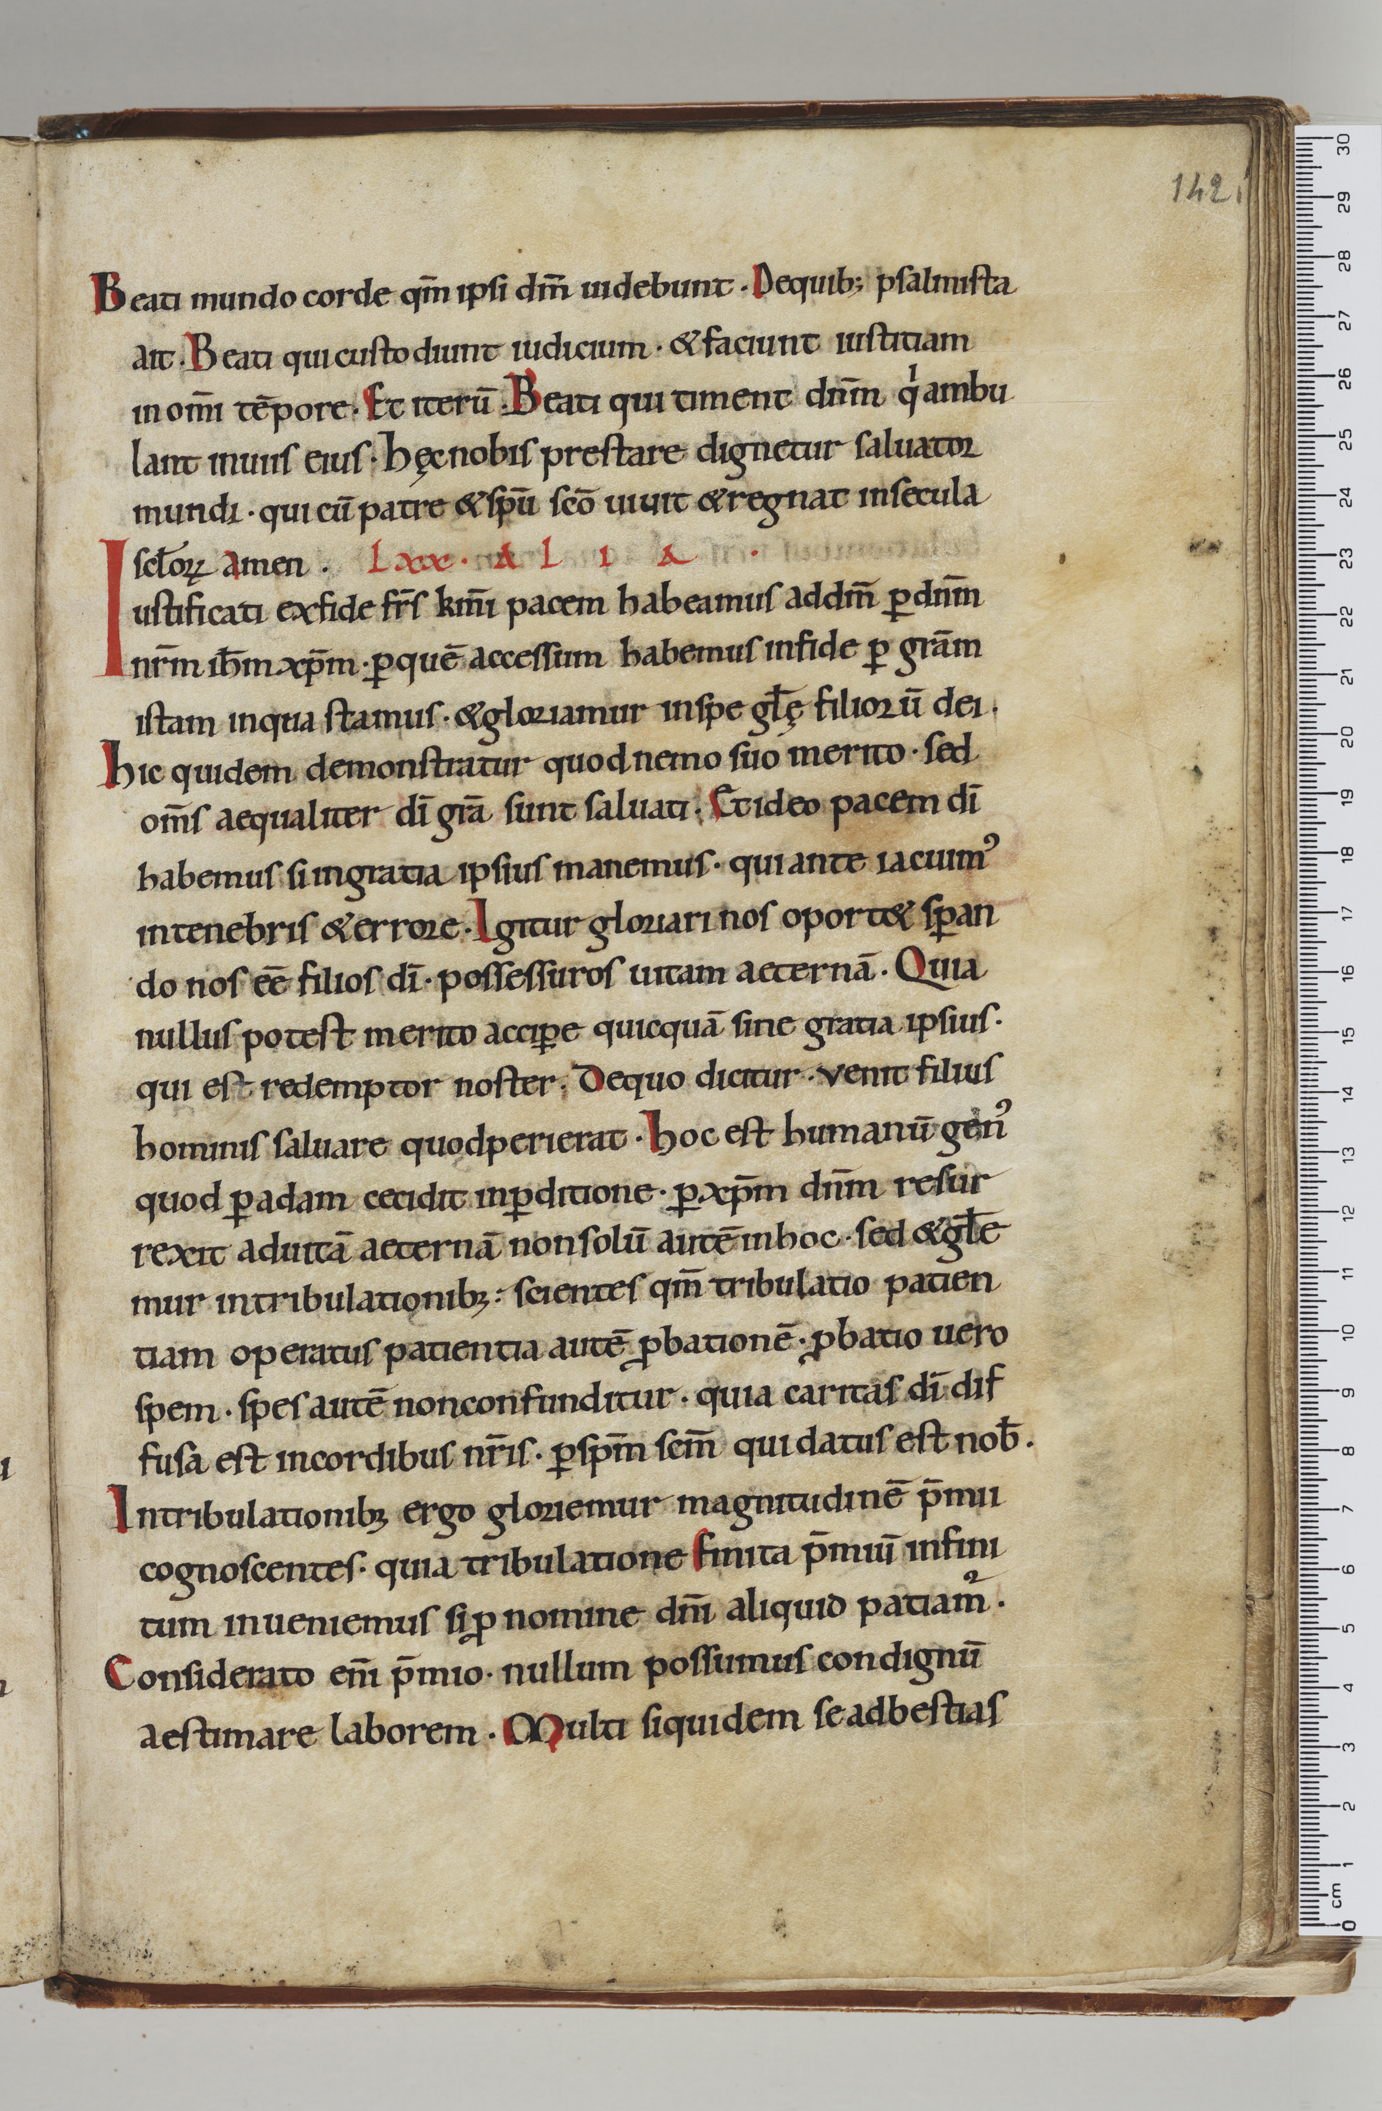 142
Beati mundo corde qm̄ ipsi dm̄ uidebunt. De quib; psalmista
ait. Beati qui custodiunt iudicium. & faciunt iustitiam
in om̄i tēpore. Et iterū. Beati qui timent dn̄m q̇ ambu
lant inuiis eius. hęc nobis prestare dignetur saluator
mundi. qui cū patre & sp̄u sc̄o uiuit & regnat in secula
scl̄oꝝ amen. Lxx. ALIA.
Iustificati ex fide fr̄s km̄i pacem habeamus ad dm̄ ꝑ dn̄m
nr̄m ih̄m xp̄m. ꝑ quē accessum habemus in fide ꝑ grām
istam in qua stamus. & gloriamur in spe gl̄ę filiorū dei.
hic quidem demonstratur quod nemo suo merito. sed
om̄s aequaliter dī grā sunt saluati. Et ideo pacem dī
habemus si in gratia ipsius manemus. qui ante iacuimꝰ
in tenebris & errore. Igitur gloriari nos oport& sꝑan
do nos eē filios dī. possessuros uitam aeternā. Quia
nullus potest merito acciꝑe quicquā sine gratia ipsius.
qui est redemptor noster. De quo dicitur. venit filius
hominis saluare quod perierat. hoc est humanū genꝰ
quod ꝑ adam cecidit in ꝑditione. ꝑ xp̄m dn̄m resur
rexit ad uitā aeternā non solū autē in hoc. sed & gl̄e
mur in tribulationibꝫ. scientes qm̄ tribulatio patien
tiam operatus patientia autē ꝓbationē. ꝓbatio uero
spem. spes autē non confunditur. quia caritas dī dif
fusa est in cordibus nr̄is. ꝑ sp̄m sc̄m qui datus est nob̄.
In tribulationibꝫ ergo gloriemur magnitudinē p̄mii
cognoscentes. quia tribulatione finita p̄miū infini
tum inueniemus si ꝓ nomine dn̄i aliquid patiam᷑.
Considerato em̄ p̄mio. nullum possumus condignū
aestimare laborem. Multi siquidem se ad bestias
30
29
28
27
26
25
24
23
22
21
20
19
18
17
16
15
14
13
12
11
10
9
8
7
6
5
4
3
2
1
cm
0